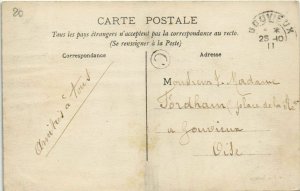 20
CARTE POSTALE
Tous les pays étrangers n'acceptent pas la correspondance au recto.
(Se renseigner à la Poste)
GOUVIEUX
25 -10
11
Correspondance
Adresse
C
Amitiés à tous
Monsieur & Madame
Fordham (place de la
à Gouvieux
Oise